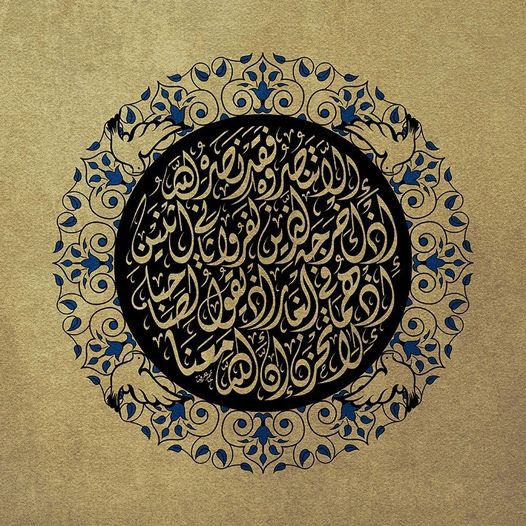 إِلَّا تَنصُرُوهُ فَقَدْ نَصَرَهُ اللَّهُ
إِذْ أَخْرَجَهُ الَّذِينَ كَفَرُوا ثَانِيَ اثْنَيْنِ
إِذْ هُمَا فِي الْغَارِ إِذْ يَقُولُ لِصَاحِبِهِ
لَا تَحْزَنْ إِنَّ اللَّهَ مَعَنَا